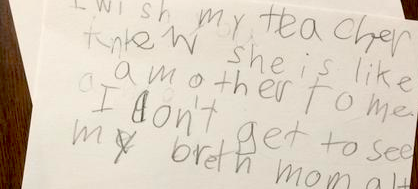 I wish my teacher
knew she is like
a mother to me
I don't get to see
my breth mom alt